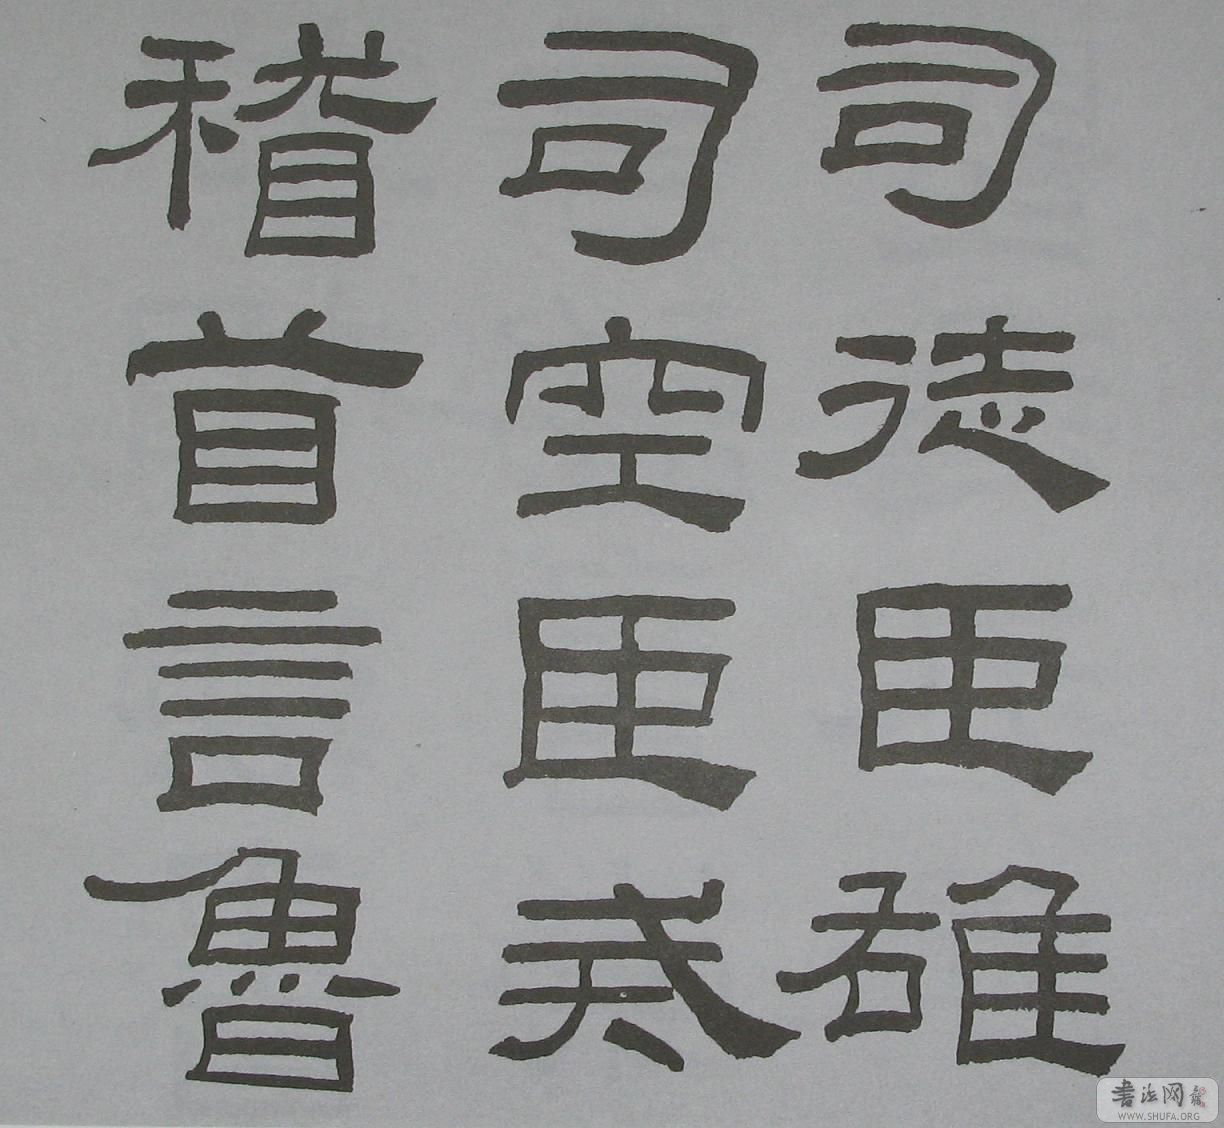 司徒臣雄
司空臣戒
稽首言魯
書法网
WWW.SHUFA.ORG